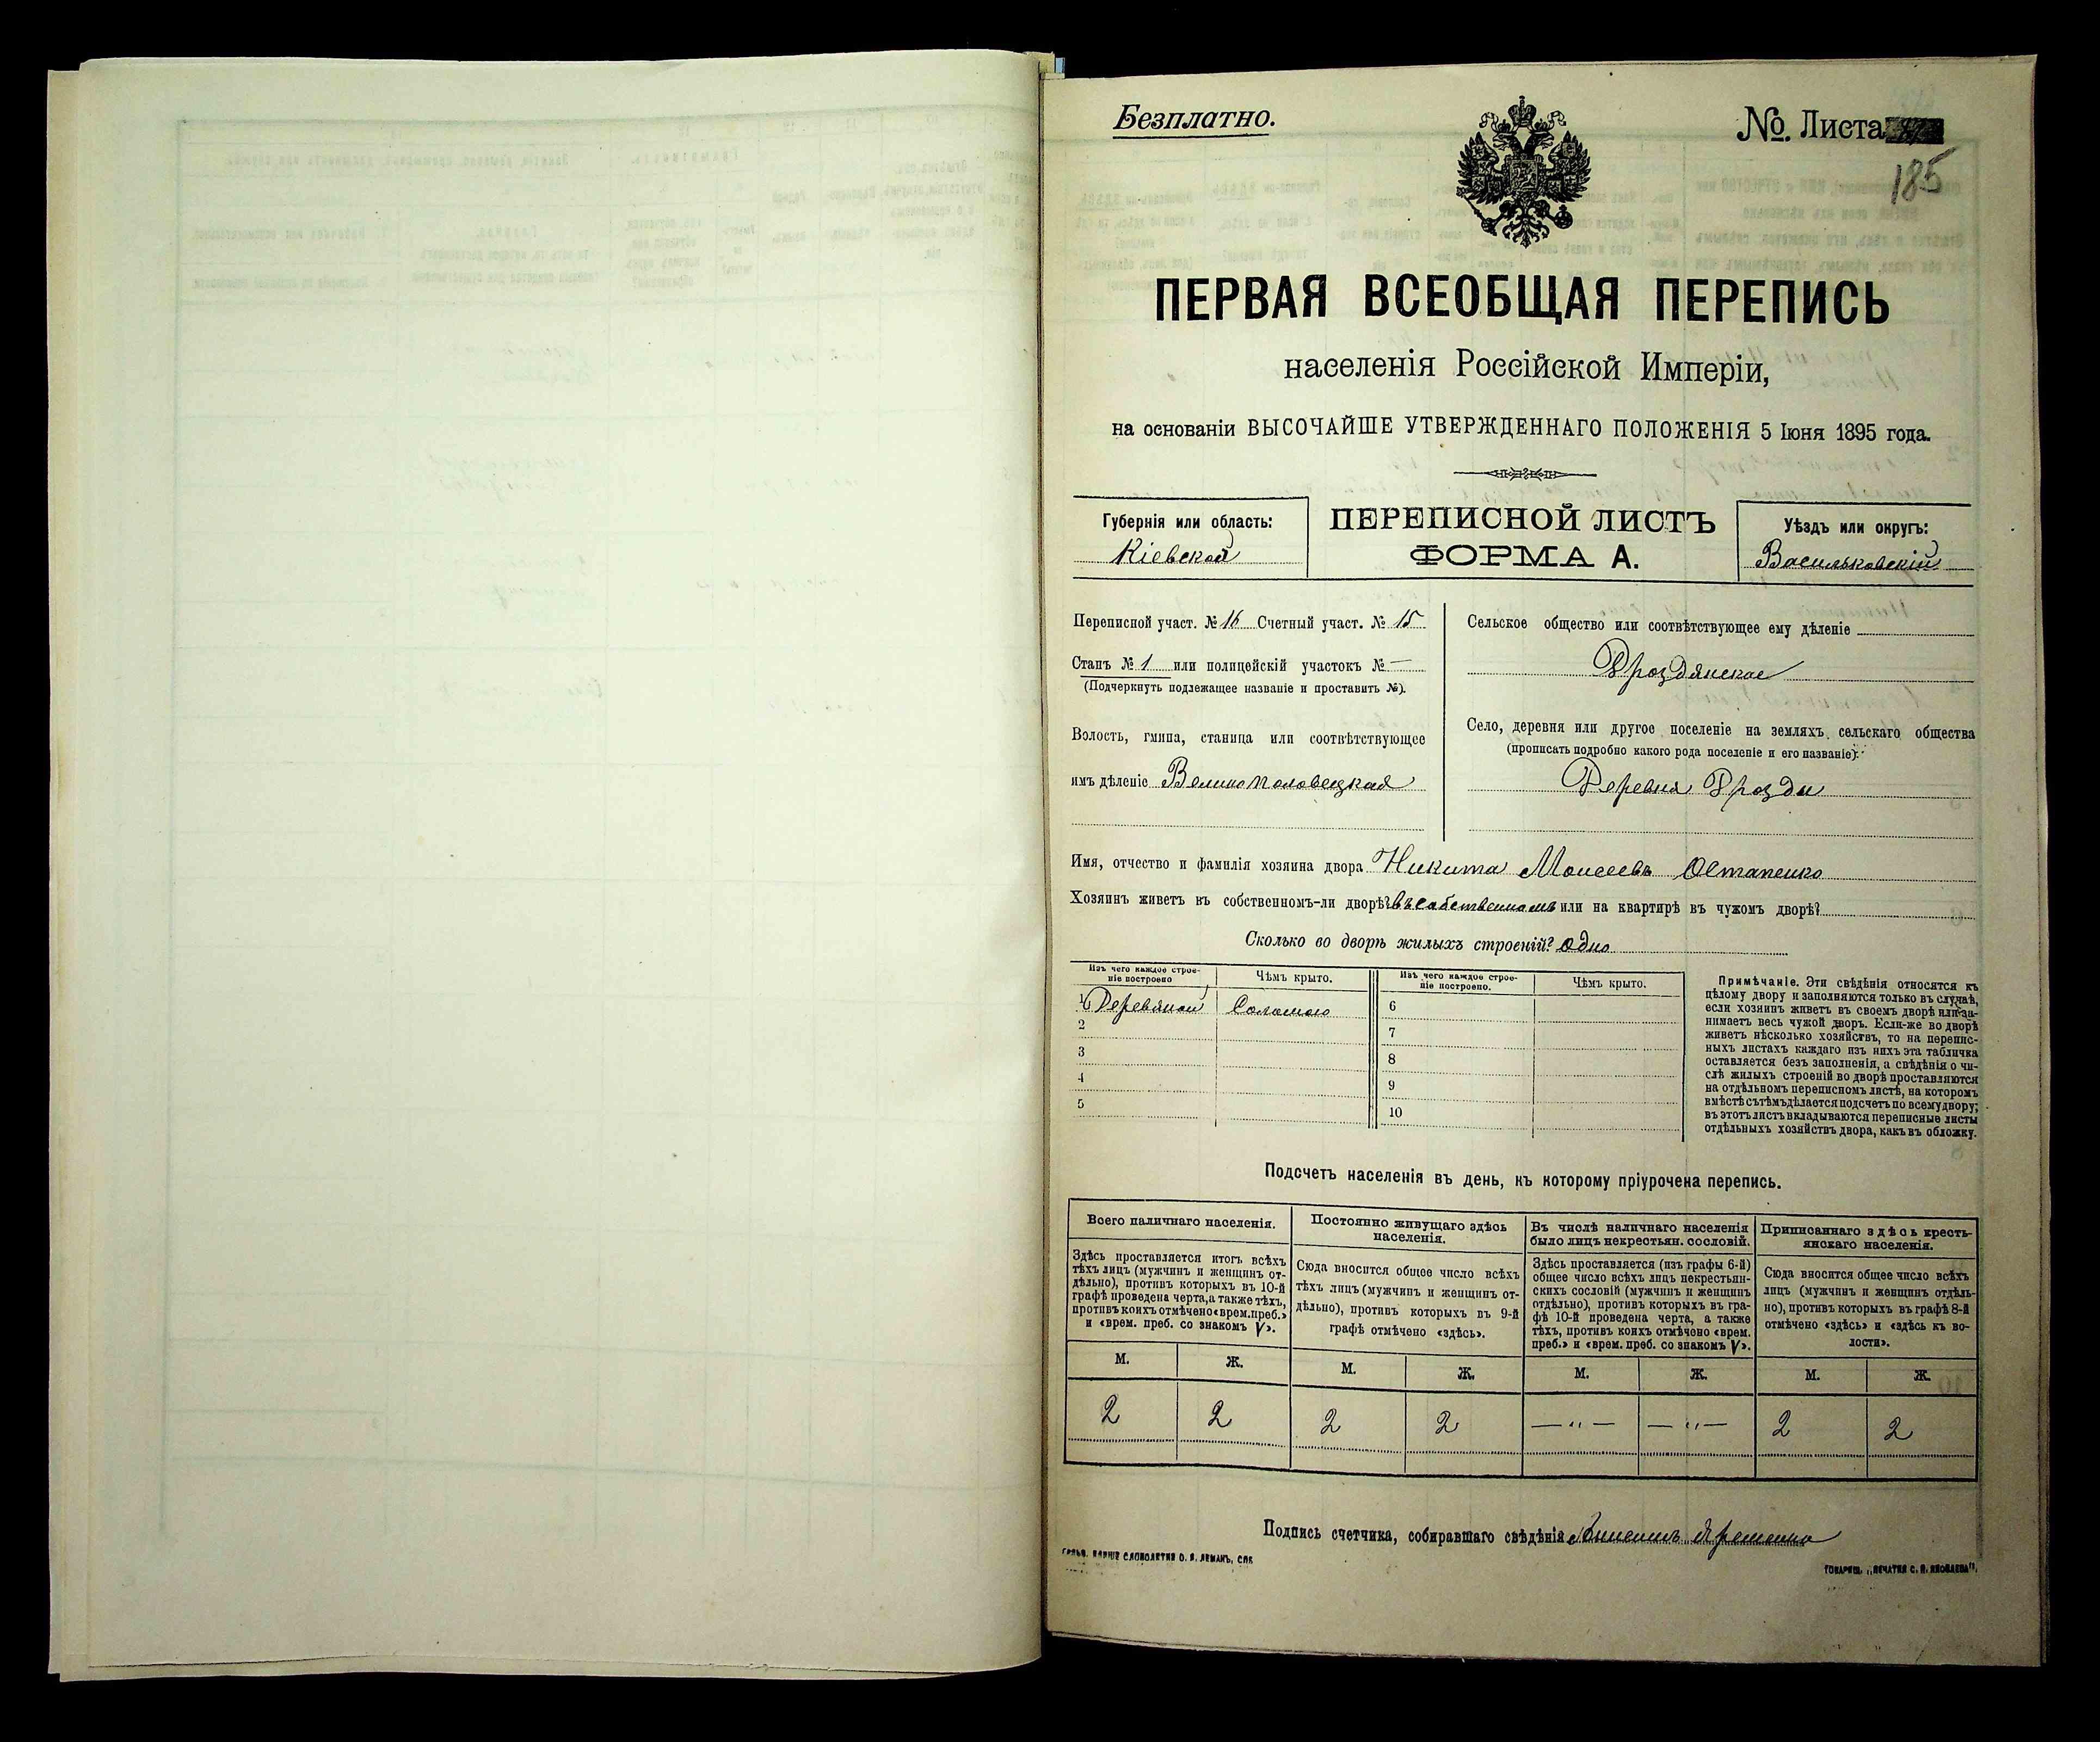 Безплатно.
№ Листа
185
ПЕРВАЯ ВСЕОБЩАЯ ПЕРЕПИСЬ
населенія Россійской Имперіи,
на основаніи ВЫСОЧАЙШЕ УТВЕРЖДЕННАГО ПОЛОЖЕНІЯ 5 Іюня 1895 года.
Губернія или область:
Кіевской
ПЕРЕПИСНОЙ ЛИСТЪ
ФОРМА А.
Уѣздъ или округъ:
Васильковскій
Переписной участ. № 16 Счетный участ. № 15
Станъ № 1 или полицейскій участокъ № —
(Подчеркнуть подлежащее названіе и проставить №).
Волость, гмина, станица или соотвѣтствующее
имъ дѣленіе Великополовецкая
Сельское общество или соотвѣтствующее ему дѣленіе
Дроздянское
Село, деревня или другое поселеніе на земляхъ сельскаго общества
(прописать подробно какого рода поселеніе и его названіе):
Деревня Дрозды
Имя, отчество и фамилія хозяина двора Никита Моисеевъ Остапенко
Хозяинъ живетъ въ собственномъ-ли дворѣ? въ собственномъ или на квартирѣ въ чужомъ дворѣ?
Сколько во дворѣ жилыхъ строеній? одно
Изъ чего каждое строе-
ніе построено
Чѣмъ крыто.
Изъ чего каждое строе-
ніе построено.
Чѣмъ крыто.
1 Деревяной Соломою
2
3
4
5
6
7
8
9
10
Примѣчаніе. Эти свѣдѣнія относятся къ
цѣлому двору и заполняются только въ случаѣ,
если хозяинъ живетъ въ своемъ дворѣ или за-
нимаетъ весь чужой дворъ. Если-же во дворѣ
живетъ нѣсколько хозяйствъ, то на перепис-
ныхъ листахъ каждаго изъ нихъ эта табличка
оставляется безъ заполненія, а свѣдѣнія о чи-
слѣ жилыхъ строеній во дворѣ проставляются
на отдѣльномъ переписномъ листѣ, на которомъ
вмѣстѣ съ тѣмъ дѣлается подсчетъ по всему двору;
въ этотъ листъ вкладываются переписные листы
отдѣльныхъ хозяйствъ двора, какъ въ обложку.
Подсчетъ населенія въ день, къ которому пріурочена перепись.
Всего наличнаго населенія.
Здѣсь проставляется итогъ всѣхъ
тѣхъ лицъ (мужчинъ и женщинъ от-
дѣльно), противъ которыхъ въ 10-й
графѣ проведена черта, а также тѣхъ,
противъ коихъ отмѣчено «врем. преб.»
и «врем. преб. со знакомъ V».
Постоянно живущаго здѣсь
населенія.
Сюда вносится общее число всѣхъ
тѣхъ лицъ (мужчинъ и женщинъ от-
дѣльно), противъ которыхъ въ 9-й
графѣ отмѣчено «здѣсь».
Въ числѣ наличнаго населенія
было лицъ некрестьян. сословій.
Здѣсь проставляется (изъ графы 6-й)
общее число всѣхъ лицъ некрестьян-
скихъ сословій (мужчинъ и женщинъ
отдѣльно), противъ которыхъ въ гра-
фѣ 10-й проведена черта, а также
тѣхъ, противъ коихъ отмѣчено «врем.
преб.» и «врем. преб. со знакомъ V».
Приписаннаго здѣсь кресть-
янскаго населенія.
Сюда вносится общее число всѣхъ
лицъ (мужчинъ и женщинъ отдѣль-
но), противъ которыхъ въ графѣ 8-й
отмѣчено «здѣсь» и «здѣсь къ во-
лости».
М. Ж. М. Ж. М. Ж. М. Ж.
2 2 2 2 — „ — — „ — 2 2
Подпись счетчика, собиравшаго свѣдѣнія
СЛОВОЛИТНЯ О. И. ЛЕМАНЪ, СПБ
ТОВАРИЩ. „ПЕЧАТНЯ С. П. ЯКОВЛЕВА".